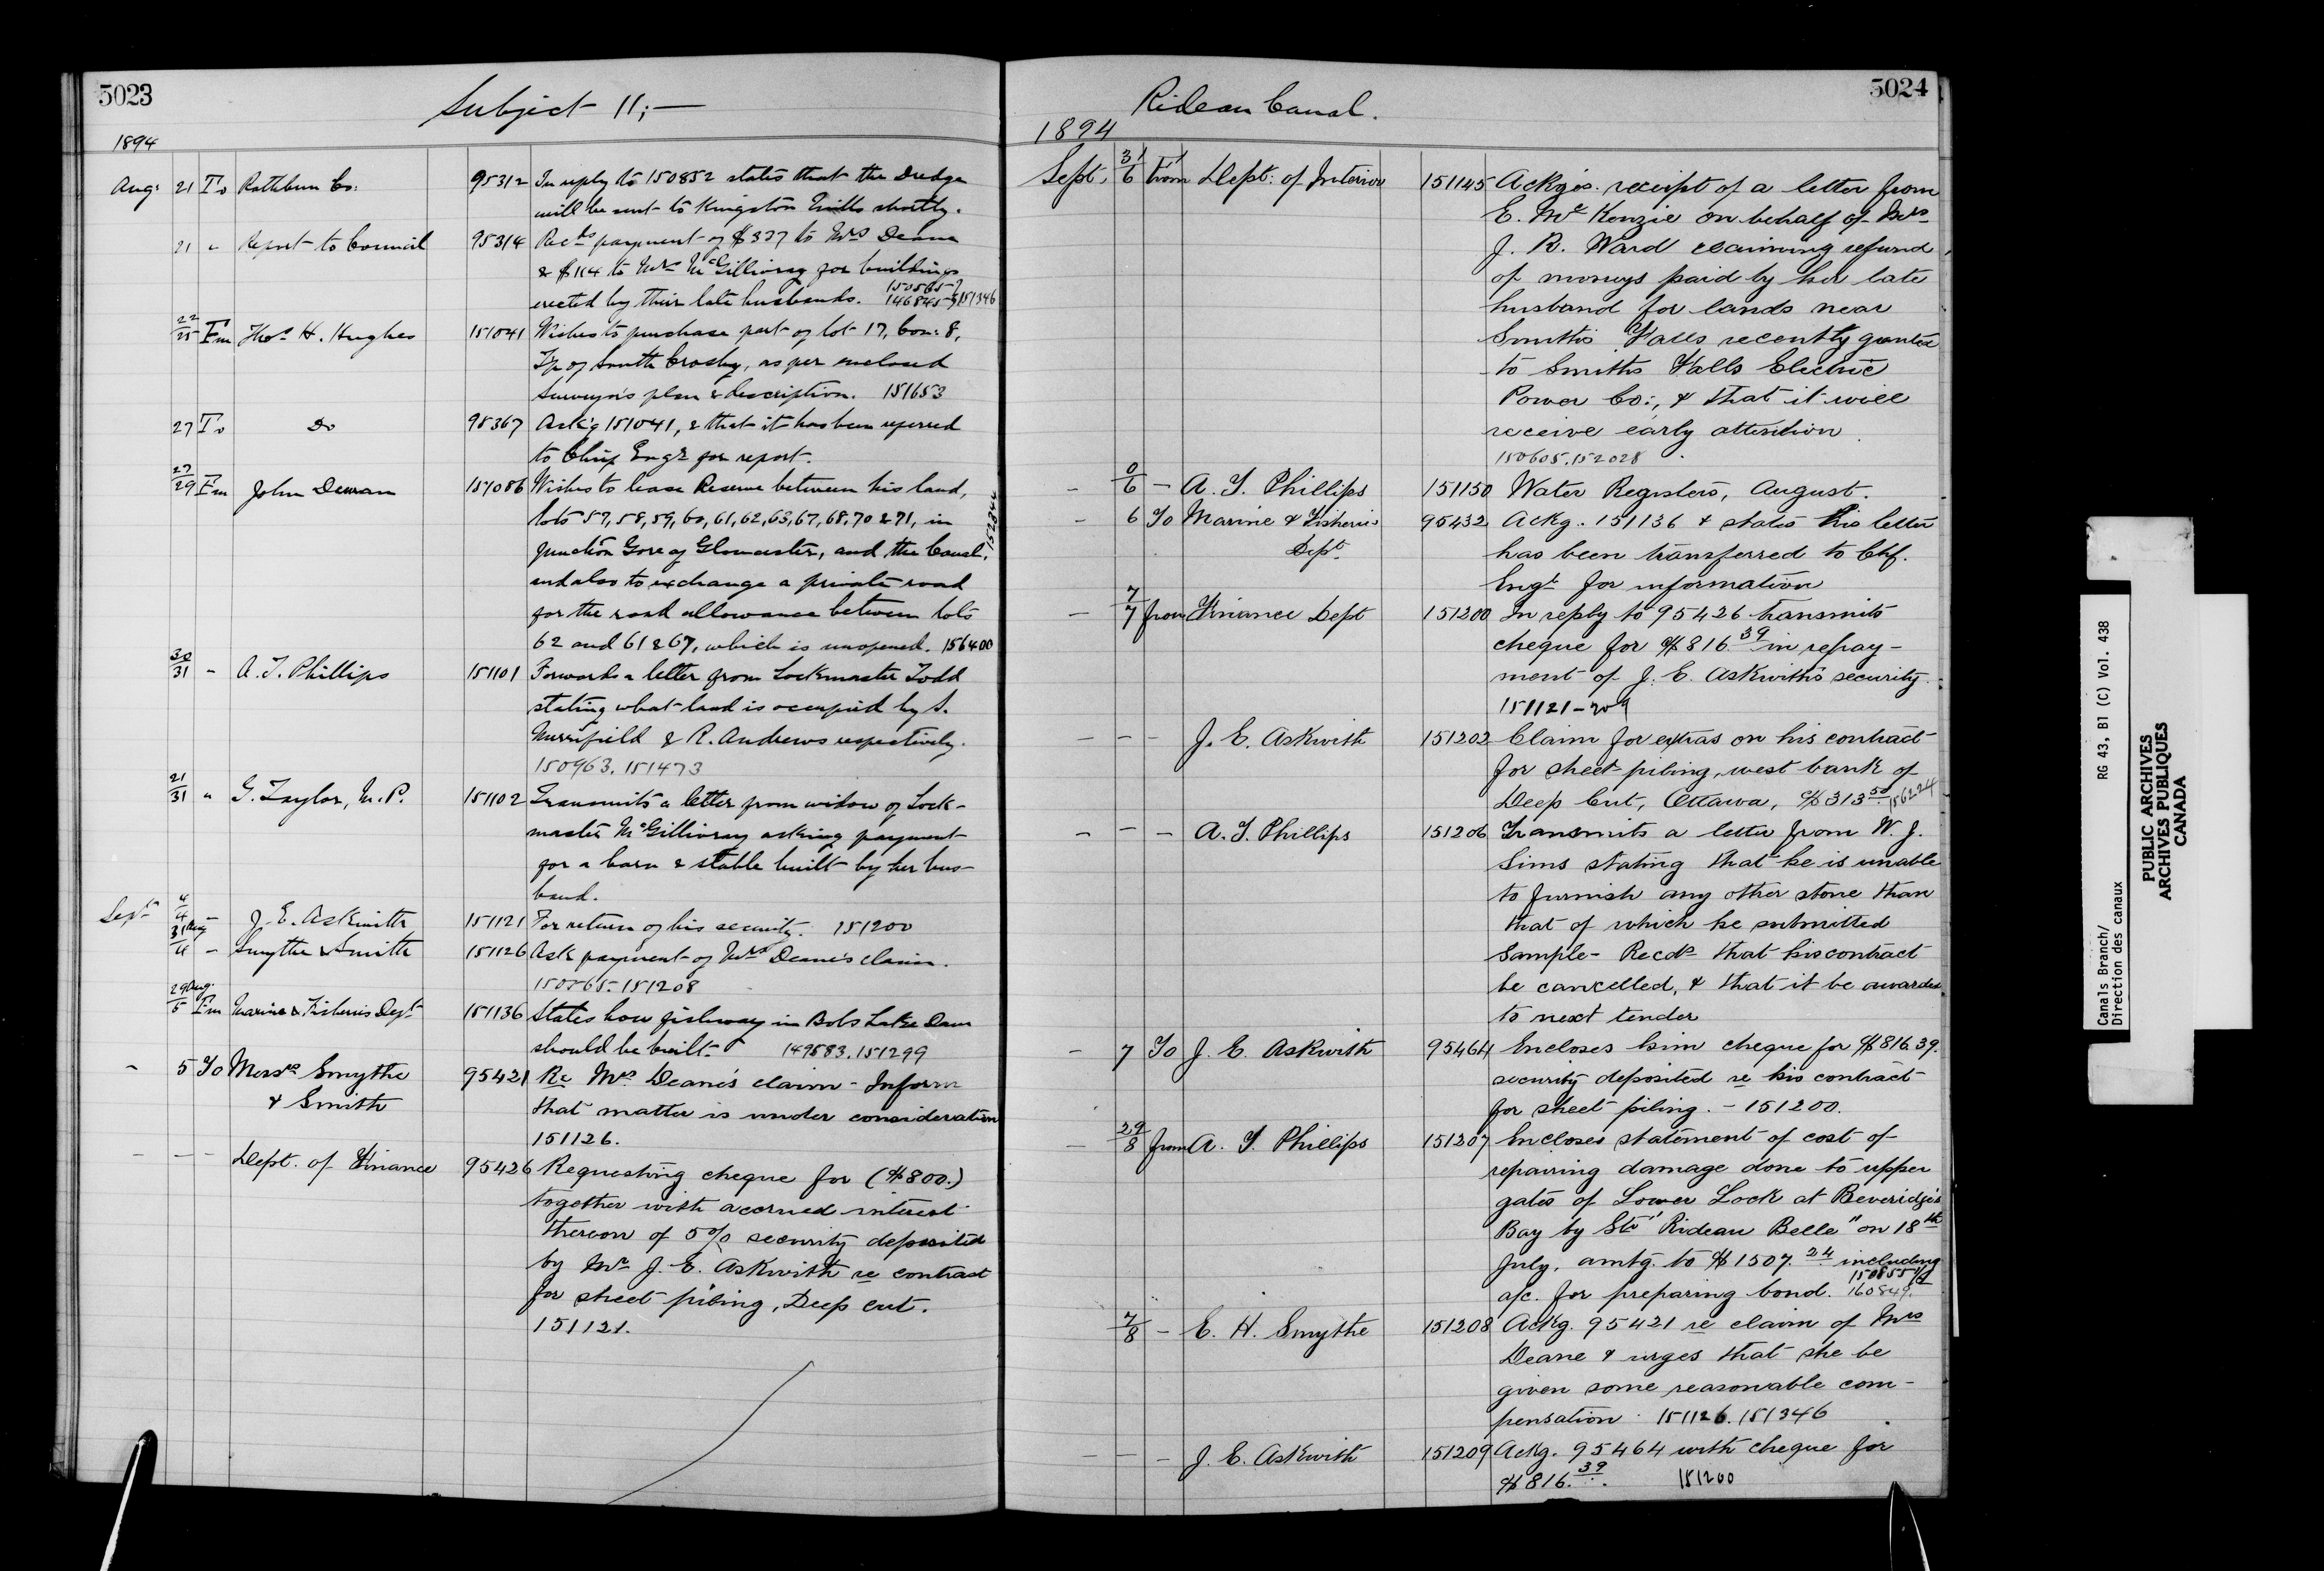 5023
Subject 11;—
1894
Aug: 21 To Rathbun Co: 95312 In reply to 150852 states that the Dredge
will be sent to Kingston Mills shortly.
21 " Report to Council 95314 Recds payment of $327 to Mrs Deane
& $114 to Mrs McGillivray for buildings
erected by their late husbands. 150565 146845 151346
22/25 Fm Thos H. Hughes 151041 Wishes to purchase part of lot 17, Con: 8,
Tp of South Crosby, as per enclosed
Surveyor's plan & description. 151653
27 To Do 95367 Ack'g 151041, & that it has been referred
to Chief Engr for report.
27/29 Fm John Dewan 151086 Wishes to lease Reserve between his land,
lots 57, 58, 59, 60, 61, 62, 63, 67, 68, 70 & 71, in
Junction Gore of Gloucester, and the Canal,
and also to exchange a private road
for the road allowance between lots
62 and 61 & 67, which is unopened. 156400
152344
30/31 - A. T. Phillips 151101 Forwards a letter from Lockmaster Todd
stating what land is occupied by S.
Merrifield & R. Andrews respectively.
150963. 151473
21/31 " G. Taylor, M.P. 151102 Transmits a letter from widow of Lock-
master McGillivray asking payment
for a barn & stable built by her hus-
band.
Sept 4/4 - J. E. Askwith 151121 For return of his security. 151200
31 Aug/4 - Smythe & Smith 151126 Ask payment of Mrs Deane's claim.
150565. 151208
29 Aug./5 Fm Marine & Fisheries Dept 151136 States how fishway in Bobs Lake Dam
should be built. 149583. 151299
- 5 To Messrs Smythe 95421 Re Mrs Deane's claim - Inform
& Smith that matter is under consideration
151126.
- - - Dept. of Finance 95426 Requesting cheque for ($800.)
together with accrued interest
thereon of 5% security deposited
by Mr J. E. Askwith re contract
for sheet piling, Deep cut.
151121.
5024
Rideau Canal.
1894
Sept. 31/6 from Dept: of Interior 151145 Ackg's. receipt of a letter from
E. McKenzie on behalf of Mrs
J. R. Ward claiming refund
of moneys paid by her late
husband for lands near
Smith's Falls recently granted
to Smiths Falls Electric
Power Co:, & that it will
receive early attention.
150605. 152028
- 0/6 - A. T. Phillips 151150 Water Registers, August.
- 6 To Marine & Fisheries 95432 Ackg. 151136 & states this letter
Dept. has been transferred to Chf.
Engr for information
- 7/7 from Finance Dept 151200 In reply to 95426 transmits
cheque for $816.39 in repay-
ment of J. E. Askwith's security.
151121-209
- - - J. E. Askwith 151202 Claim for extras on his contract
for sheet piling, west bank of
Deep Cut, Ottawa, $313.50 156224
- - - A. T. Phillips 151206 Transmits a letter from W. J.
Sims stating that he is unable
to furnish any other stone than
that of which he submitted
sample - Recds that his contract
be cancelled, & that it be awarded
to next tender
- 7 To J. E. Askwith 95464 Encloses him cheque for $816.39.
security deposited re his contract
for sheet piling. - 151200.
- 29/8 from A. T. Phillips 151207 Encloses statement of cost of
repairing damage done to upper
gates of Lower Lock at Beveridge's
Bay by Str "Rideau Belle" on 18th
July, amtg. to $1507.24 including
a/c. for preparing bond. 150855 1/2 160849.
7/8 - E. H. Smythe 151208 Ackg. 95421 re claim of Mrs
Deane & urges that she be
given some reasonable com-
pensation. 151126. 151346
- - - J. E. Askwith 151209 Ackg. 95464 with cheque for
$816.39. 151200
Canals Branch/ RG 43, B1 (C) Vol. 438
Direction des canaux
PUBLIC ARCHIVES
ARCHIVES PUBLIQUES
CANADA